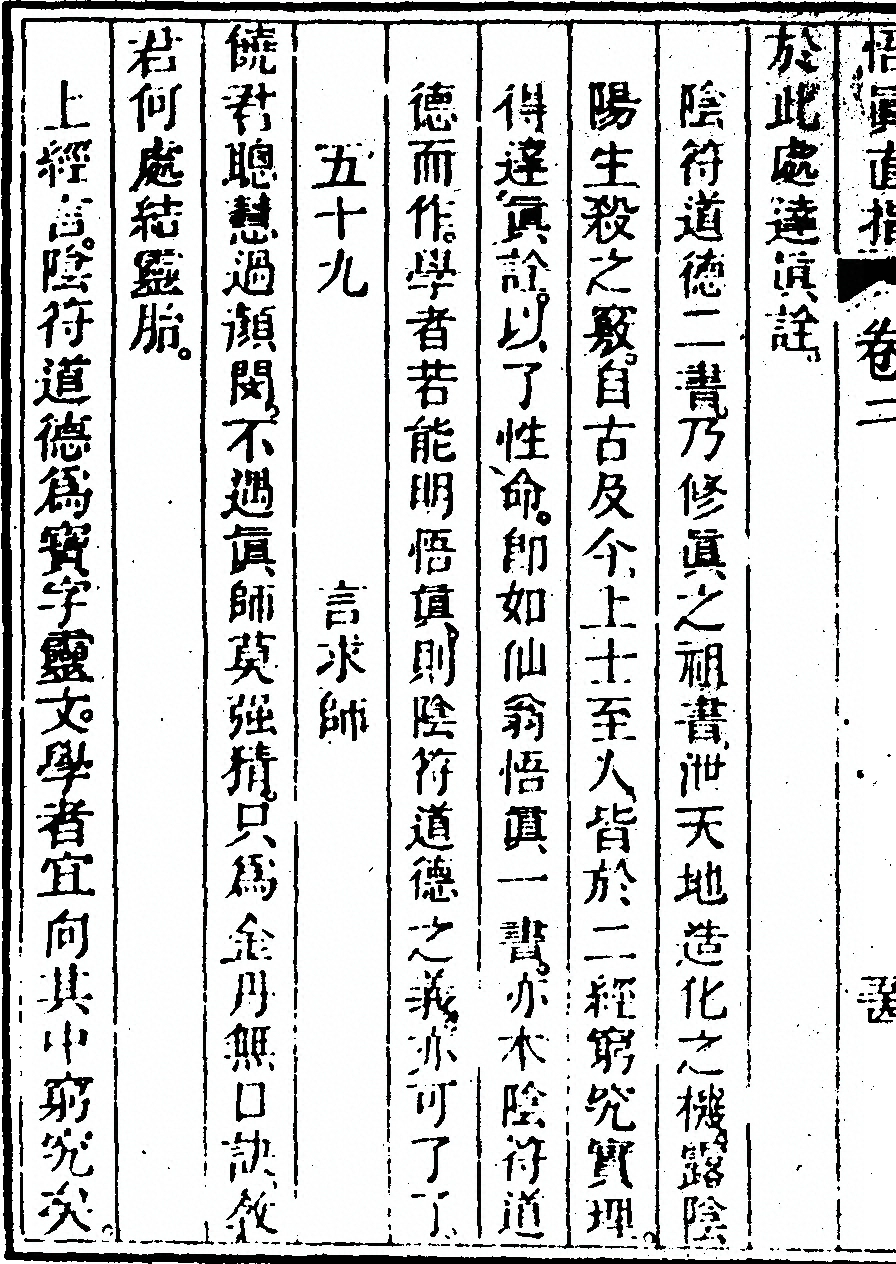 悟眞直指　卷二
於此處達眞詮、
陰符道德二書、乃修眞之祖書、泄天地造化之機、露陰
陽生殺之竅。自古及今、上士至人、皆於二經窮究實理。
得達眞詮。以了性命。卽如仙翁悟眞一書。亦本陰符道
德而作。學者若能明悟眞、則陰符道德之義、亦可了了、
五十九　言求師
饒君聰慧過顏閔。不遇眞師莫强猜。只爲金丹無口訣、敎
君何處結靈胎。
上經言。陰符道德爲寶字靈文。學者宜向其中窮究矣。